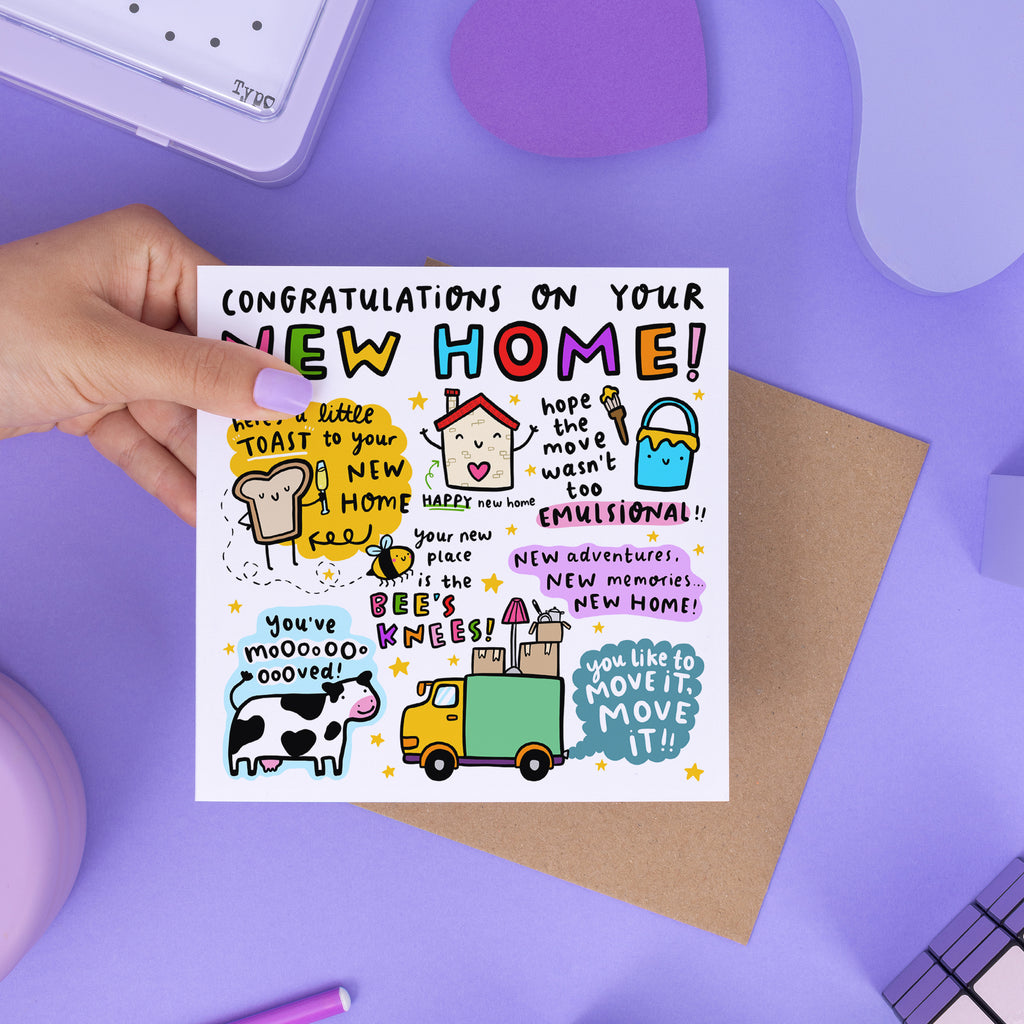 Typo
CONGRATULATiONS ON YOUR
NEW HOME!
here's a little
TOAST to your
NEW
HOME
HAPPY new home
hope
the
move
wasn't
too
EMULSIONAL!!
your new
place
is the
BEE'S
KNEES!
NEW adventures,
NEW memories...
NEW HOME!
you've
moOOoOOo
oOOved!
you like to
MOVE iT,
MOVE
iT!!